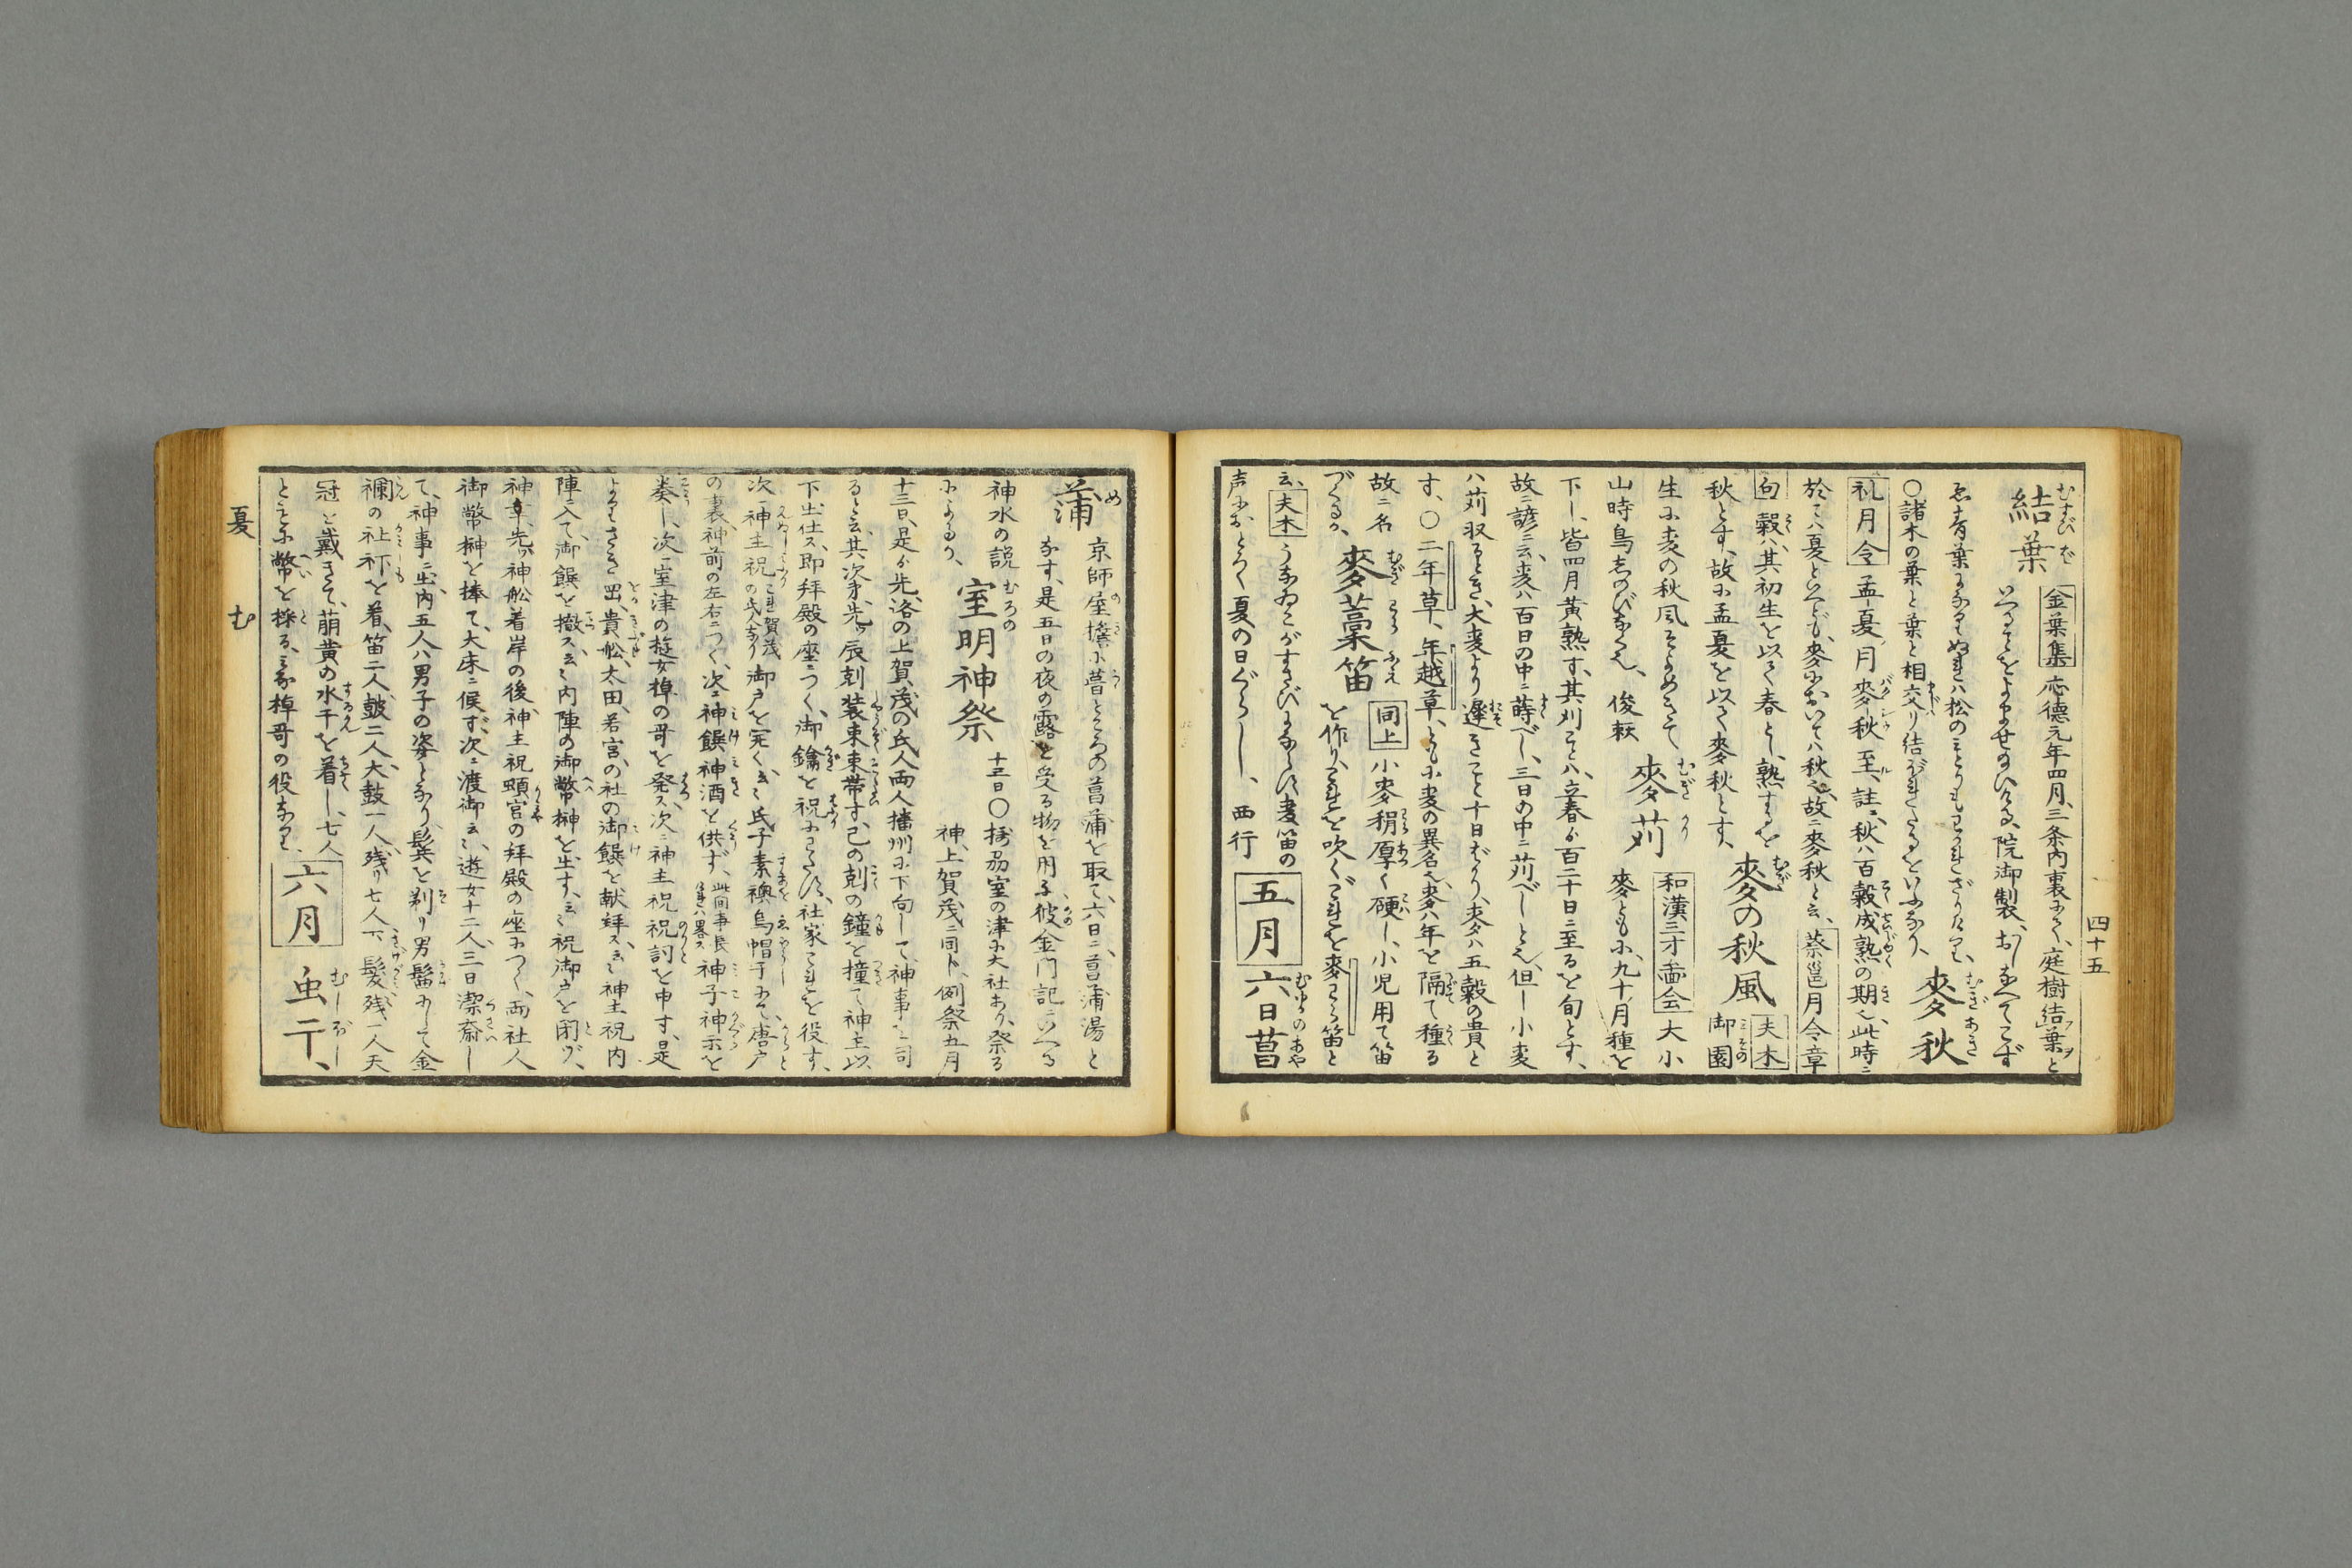 四十五
結葉 金葉集 応徳元年四月、三条内裏にて、庭樹結葉と
いへることをよませ給ひける、院御製、おしなべてこず
ゑ青葉になりぬれハ松のみどりもわかれざりけり、
〇諸木の葉と葉と相交り結ぼれたるをいふなり、 麥秋
礼月令 孟夏ノ月麥秋至ル、註ニ、秋ハ百穀成熟の期也、此時ニ
於てハ夏といへども、麥においてハ秋也、故ニ麥秋と云、 蔡邕月令章
句 穀ハ其初生を以て春とし、熟するを
秋とす、故に孟夏を以て麥秋とす、 麥の秋風 夫木 御園
生に麦の秋風そよめきて、
山時鳥しのびなく也、 俊頼 麥刈 和漢三才啚会 大小
麥ともに、九十月種を
下し、皆四月黄熟す、其刈ことハ、立春ゟ百二十日ニ至るを旬とす、
故ニ諺ニ云、麦ハ百日の中ニ蒔べし、三日の中ニ苅べしと也、但し小麦
ハ苅収るとき、大麦より遲きこと十日ばかり、麦ハ五穀の貴と
す、〇二年草、年越草、ともに麦の異名也、麥ハ年を隔て種る
故ニ名
づくるか、 麥藁笛 同上 小麥稈厚く硬し、小児用て笛
を作り、これを吹く、これを麥わら笛と
云、 夫木 うなゐこがすさびにならす麦笛の
声におどろく夏の日ぐらし、 西行 五月 六日菖
蒲 京師屋檐に葺ところの菖蒲を取て、六日ニ菖蒲湯と
なす、是五日の夜の露を受る物を用ふ、彼金門記にいへる
神水の説
によるか、 室明神祭 十三日〇播刕室の津に大社あり、祭る
神、上賀茂ニ同ト、例祭五月
十三日、是ゟ先、洛の上賀茂の氏人両人播州に下向して、神事を司
ると云、其次第、先ヅ辰剋装束束帯す、巳の剋の鐘を撞て神主以
下出仕ス、即拜殿の座につく、御鑰を祝にわたす、社家これを役す、
次ニ神主祝 これ賀茂の氏人なり 御戸を完く、云々氏子素襖烏帽子にて、唐戸
の裏、神前の左右につく、次ニ神饌神酒を供ず、 此間事長ければ畧ス 神子神示を
奏し、次ニ室津の遊女棹の哥を発ス、次ニ神主祝祝詞を申す、是
よりさき 岡、貴舩、太田、若宮の社の御饌を献拜ス、云々神主祝内
陣ニ入て、御饌を撤ス、云々内陣の御幣榊を出す、云々祝御戸を閉ヅ、
神幸、先ヅ神舩着岸の後、神主祝顕官の拜殿の座につく、両社人
御幣榊を捧て、大床ニ候ず、次ニ渡御云々、遊女十二人、三日潔斎し
て、神事ニ出、内五人ハ男子の姿となり鬂を剃り男髷にして金
襴の社杯を着、笛二人、鼓二人、大鼓一人、残り七人下髪、残一人天
冠を戴きて、萠黄の水干を着し、七人
ともに幣を採る、云々棹哥の役なり、 六月 虫干、
夏 む